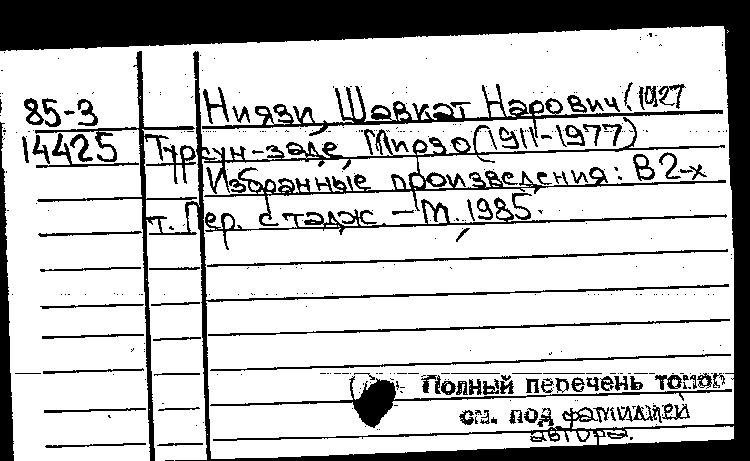 85-3 Ниязи, Шавкат Нарович (1927
14425 Турсун-заде Мирзо (1911-1977)
Избранные произведения: В 2-х
т. Пер. с тадж. – М., 1985.
Полный перечень томов
см. под фамилией
автора.